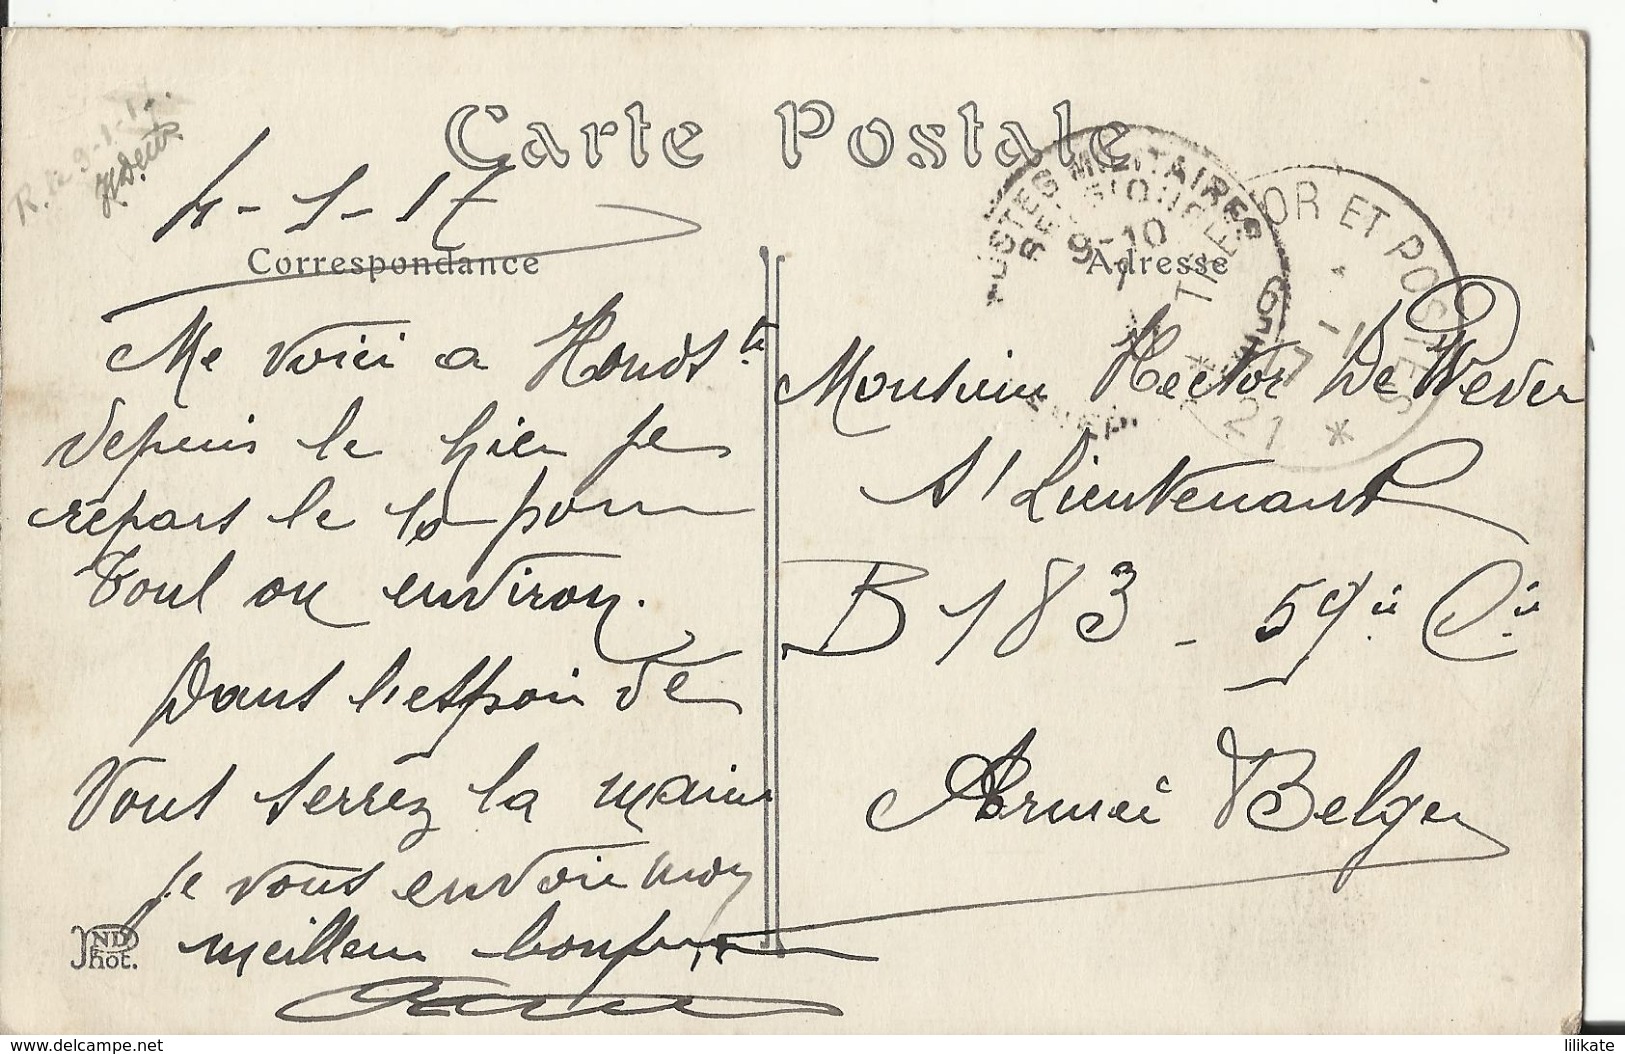 Carte Postale
R. le 9-1-17.
4-1-17
Correspondance
Me voici a Honds.te
depuis le hier je
repars le 10 pour
Toul ou environ.
Dans l'espoir de
vous serrez la main
je vous envoie mon
meilleur bonjour
ND
Phot.
POSTES MILITAIRES
BELGIQUE
9-10
TRESOR ET POSTES
* 21 *
Adresse
Monsieur Hector De Wever
S/ Lieutenant
B 183 - 59ie Cie
Armeé Belge
delcampe.net
lilikate